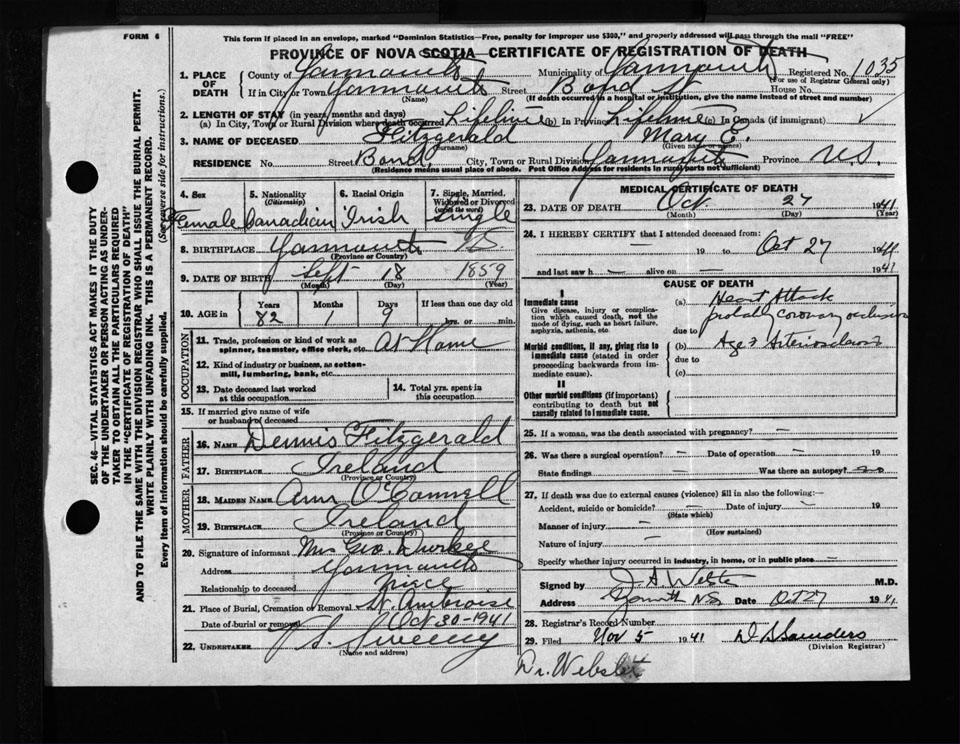 FORM 6
This form if placed in an envelope, marked "Dominion Statistics—Free, penalty for improper use $300," and properly addressed will pass through the mail "FREE"
PROVINCE OF NOVA SCOTIA CERTIFICATE OF REGISTRATION OF DEATH
1. PLACE OF DEATH
County of Yarmouth Municipality of Yarmouth Registered No. 1035
(For use of Registrar General only)
If in City or Town Yarmouth Street Bond St House No.
(Name) (If death occurred in a hospital or institution, give the name instead of street and number)
2. LENGTH OF STAY (in years, months and days)
(a) In City, Town or Rural Division where death occurred Lifetime (b) In Province Lifetime (c) In Canada (if immigrant)
3. NAME OF DECEASED Fitzgerald Mary E.
(Surname) (Given name or names)
RESIDENCE No. Street Bond, City, Town or Rural Division Yarmouth Province N.S.
(Residence means usual place of abode. Post Office Address for residents in rural parts not sufficient)
4. Sex Female
5. Nationality (Citizenship) Canadian
6. Racial Origin Irish
7. Single, Married, Widowed or Divorced (write the word) Single
8. BIRTHPLACE Yarmouth N.S.
(Province or Country)
9. DATE OF BIRTH Sept 18 1859
(Month) (Day) (Year)
10. AGE in Years Months Days If less than one day old
82 1 9 hrs. or min.
OCCUPATION
11. Trade, profession or kind of work as spinner, teamster, office clerk, etc. At Home
12. Kind of industry or business, as cotton-mill, lumbering, bank, etc.
13. Date deceased last worked at this occupation
14. Total yrs. spent in this occupation
15. If married give name of wife or husband of deceased
FATHER
16. NAME Dennis Fitzgerald
17. BIRTHPLACE Ireland
(Province or Country)
MOTHER
18. MAIDEN NAME Ann O'Connell
19. BIRTHPLACE Ireland
(Province or Country)
20. Signature of informant Mrs Geo. Durkee
Address Yarmouth
Relationship to deceased niece
21. Place of Burial, Cremation or Removal St. Ambroise
Date of burial or removal Oct 30-1941
22. UNDERTAKER V. S. Sweeny
(Name and address)
MEDICAL CERTIFICATE OF DEATH
23. DATE OF DEATH Oct 27 1941
(Month) (Day) (Year)
24. I HEREBY CERTIFY that I attended deceased from:
— 19 to Oct 27 1941
and last saw h — alive on — 1941
CAUSE OF DEATH
I
Immediate cause
Give disease, injury or complication which caused death, not the mode of dying, such as heart failure, asphyxia, asthenia, etc.
(a) Heart Attack
probably coronary occlusion
due to
Morbid conditions, if any, giving rise to immediate cause (stated in order proceeding backwards from immediate cause).
(b) Age & Arteriosclerosis
due to
(c)
II
Other morbid conditions (if important) contributing to death but not causally related to immediate cause.
25. If a woman, was the death associated with pregnancy? —
26. Was there a surgical operation? — Date of operation — 19
State findings — Was there an autopsy? no
27. If death was due to external causes (violence) fill in also the following:—
Accident, suicide or homicide? — Date of injury — 19
(State which)
Manner of injury —
(How sustained)
Nature of injury —
Specify whether injury occurred in industry, in home, or in public place —
Signed by M.D.
Address Yarmouth N.S. Date Oct 27 1941
28. Registrar's Record Number
29. Filed Nov 5 1941 Saunders
(Division Registrar)
Dr. Webster
SEC. 46—VITAL STATISTICS ACT MAKES IT THE DUTY
OF THE UNDERTAKER OR PERSON ACTING AS UNDER-
TAKER TO OBTAIN ALL THE PARTICULARS REQUIRED
IN THE "CERTIFICATE OF REGISTRATION OF DEATH"
AND TO FILE THE SAME WITH THE DIVISION REGISTRAR WHO SHALL ISSUE THE BURIAL PERMIT.
WRITE PLAINLY WITH UNFADING INK. THIS IS A PERMANENT RECORD.
Every item of information should be carefully supplied. (See reverse side for instructions.)